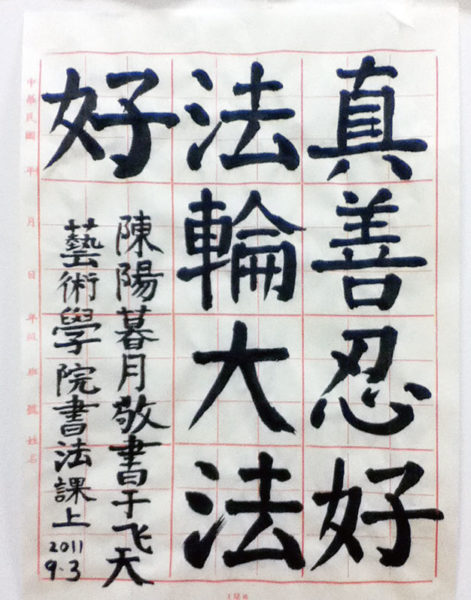 真善忍好
法輪大法
好
陳陽暮月敬書于飞天
藝術學院書法課上
2011
9.3
中華民國 年 月 日 年 班 號 姓名